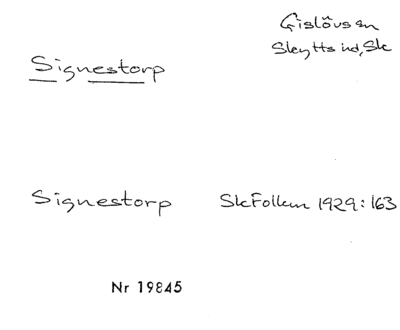 Gislövs sn
Skytts hd, Sk
Signestorp
Signestorp SkFolkm 1929:163
Nr 19845